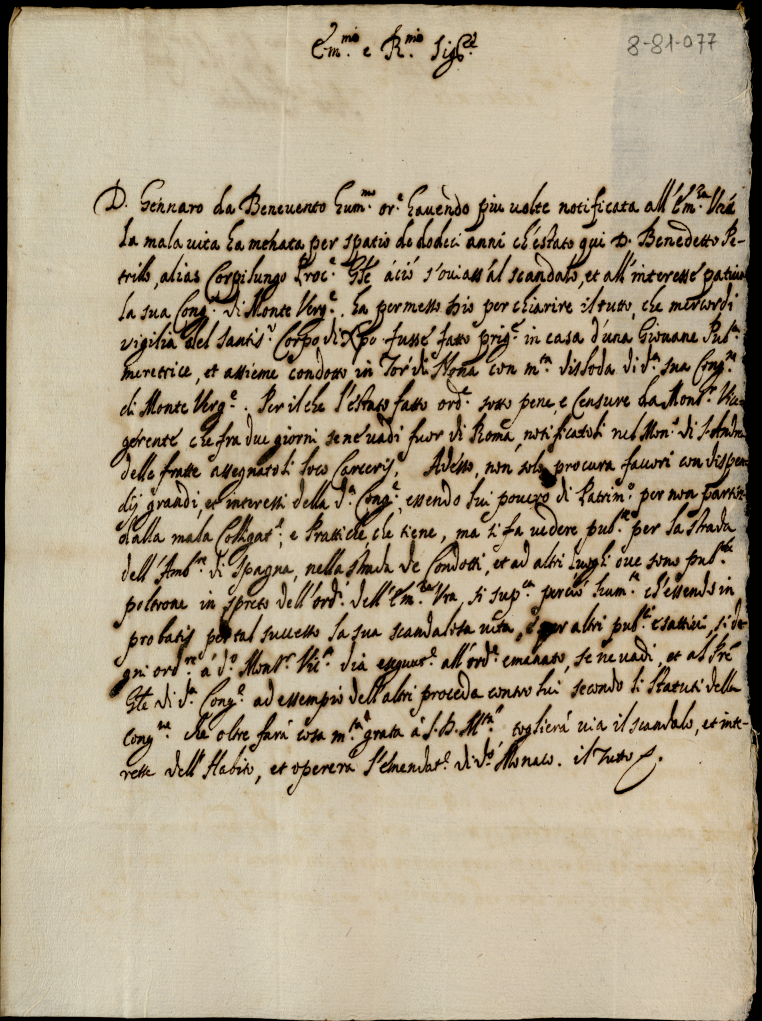 8-81-077
E.mo e R.mo Sig.re
D. Gennaro da Beneuento hum.mo or.e hauendo piu uolte notificata all'Em.za Vra
la mala uita ha menata per spatio de dodeci anni ch'è stato qui D. Benedetto Pe-
trillo, alias Corpilungo Proc.e Gñle acciò s'ouiass'al scandalo, et all'interesse patiua
la sua Cong.e di Monte Verg.e. ha permesso Dio per chiarire il tutto, che mercordi
vigilia del Santis.o Corpo di Xpo fusse fatto prig.e in casa d'una Giouane Pub.ca
meretrice, et assieme condotto in Tor di Nona con m.ta dissoda di d.a sua Cong.ne
di Monte Verg.e. Per il che l'è stato fatto ord.e sotto pene, e Censure da Mons.r Vice-
gerente che fra due giorni se ne uadi fuor di Roma, notificatoli nel Mon.o di S. Andrea
delle fratte assegnatoli loco Carceris. Adesso, non solo procura fauori con dispen-
dij grandi, et interessi della d.a Cong.e, essendo lui pouero di Patrim.o per non partire
dalla mala Colligat.e, e Prattiche, che tiene, ma si fa uedere pub.te per la strada
dell'Amb.re di Spagna, nella strada de Condotti, et ad altri luoghi oue sono pub.che
poltrone in spreto dell'ord.e dell'Em.za Vra, si sup.ca perciò hum.te ch'essendo in
probatis per tal successo la sua scandalosa uita, e per altri pub.ci esattiui, si de-
gni ord.re à d.o Mons.r Vic.te dia essecut.e all'ord.e emanato, se ne uadi, et al Pre
Gñle di d.a Cong.e ad essempio dell'altri proceda contro lui secondo li statuti della
Cong.ne che oltre farà cosa m.ta grata à S. D. M.tà toglierà uia il scandalo, et inte-
resse dell'Habito, et opererà l'emendat.e di d.o Monaco. il Tutto